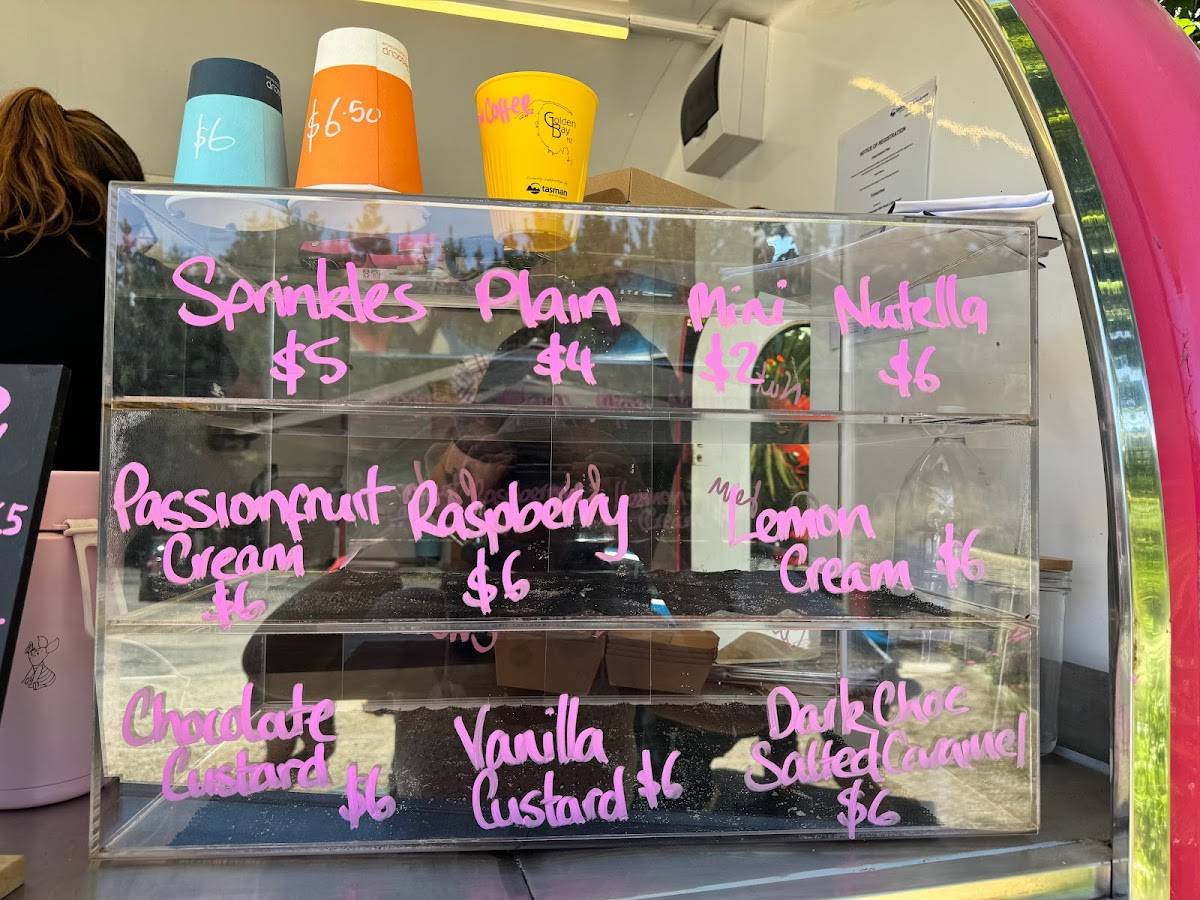 $6
$6.50
Coffee
Golden
Bay
NZ
tasman
NOTICE OF REGISTRATION
Sprinkles
$5
Plain
$4
Mini
$2
Nutella
$6
Passionfruit
Cream
$6
Raspberry
$6
Lemon
Cream $6
Chocolate
Custard $6
Vanilla
Custard $6
Dark Choc
Salted Caramel
$6